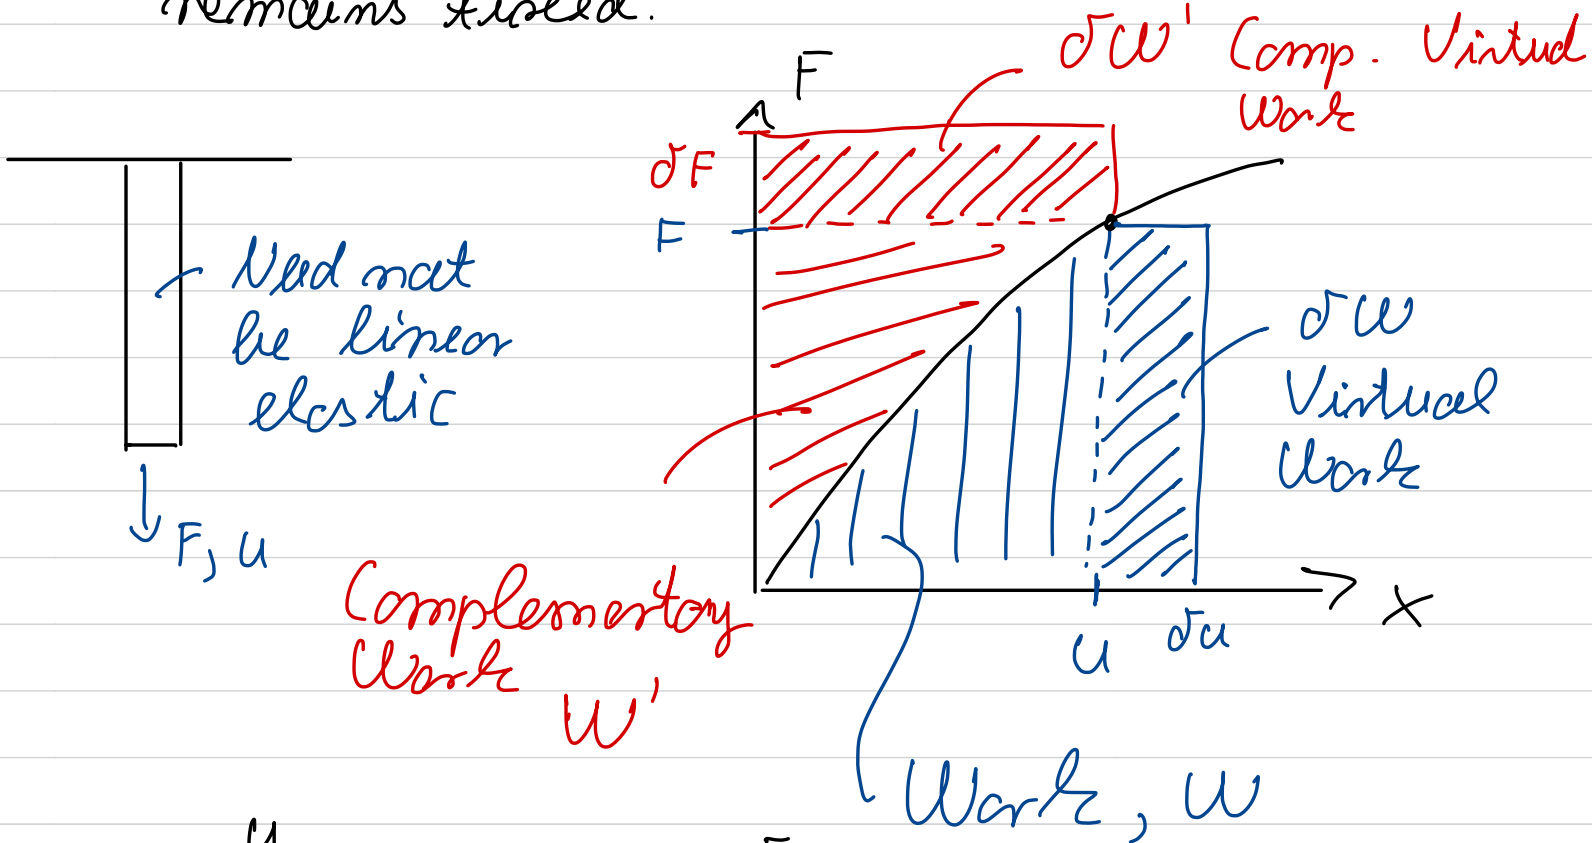 remains fixed.
F
δW' Comp. Virtual
Work
δF
F
Need not
be linear
elastic
δW
Virtual
Work
F, u
Complementary
Work
W'
x
u
δu
Work, W